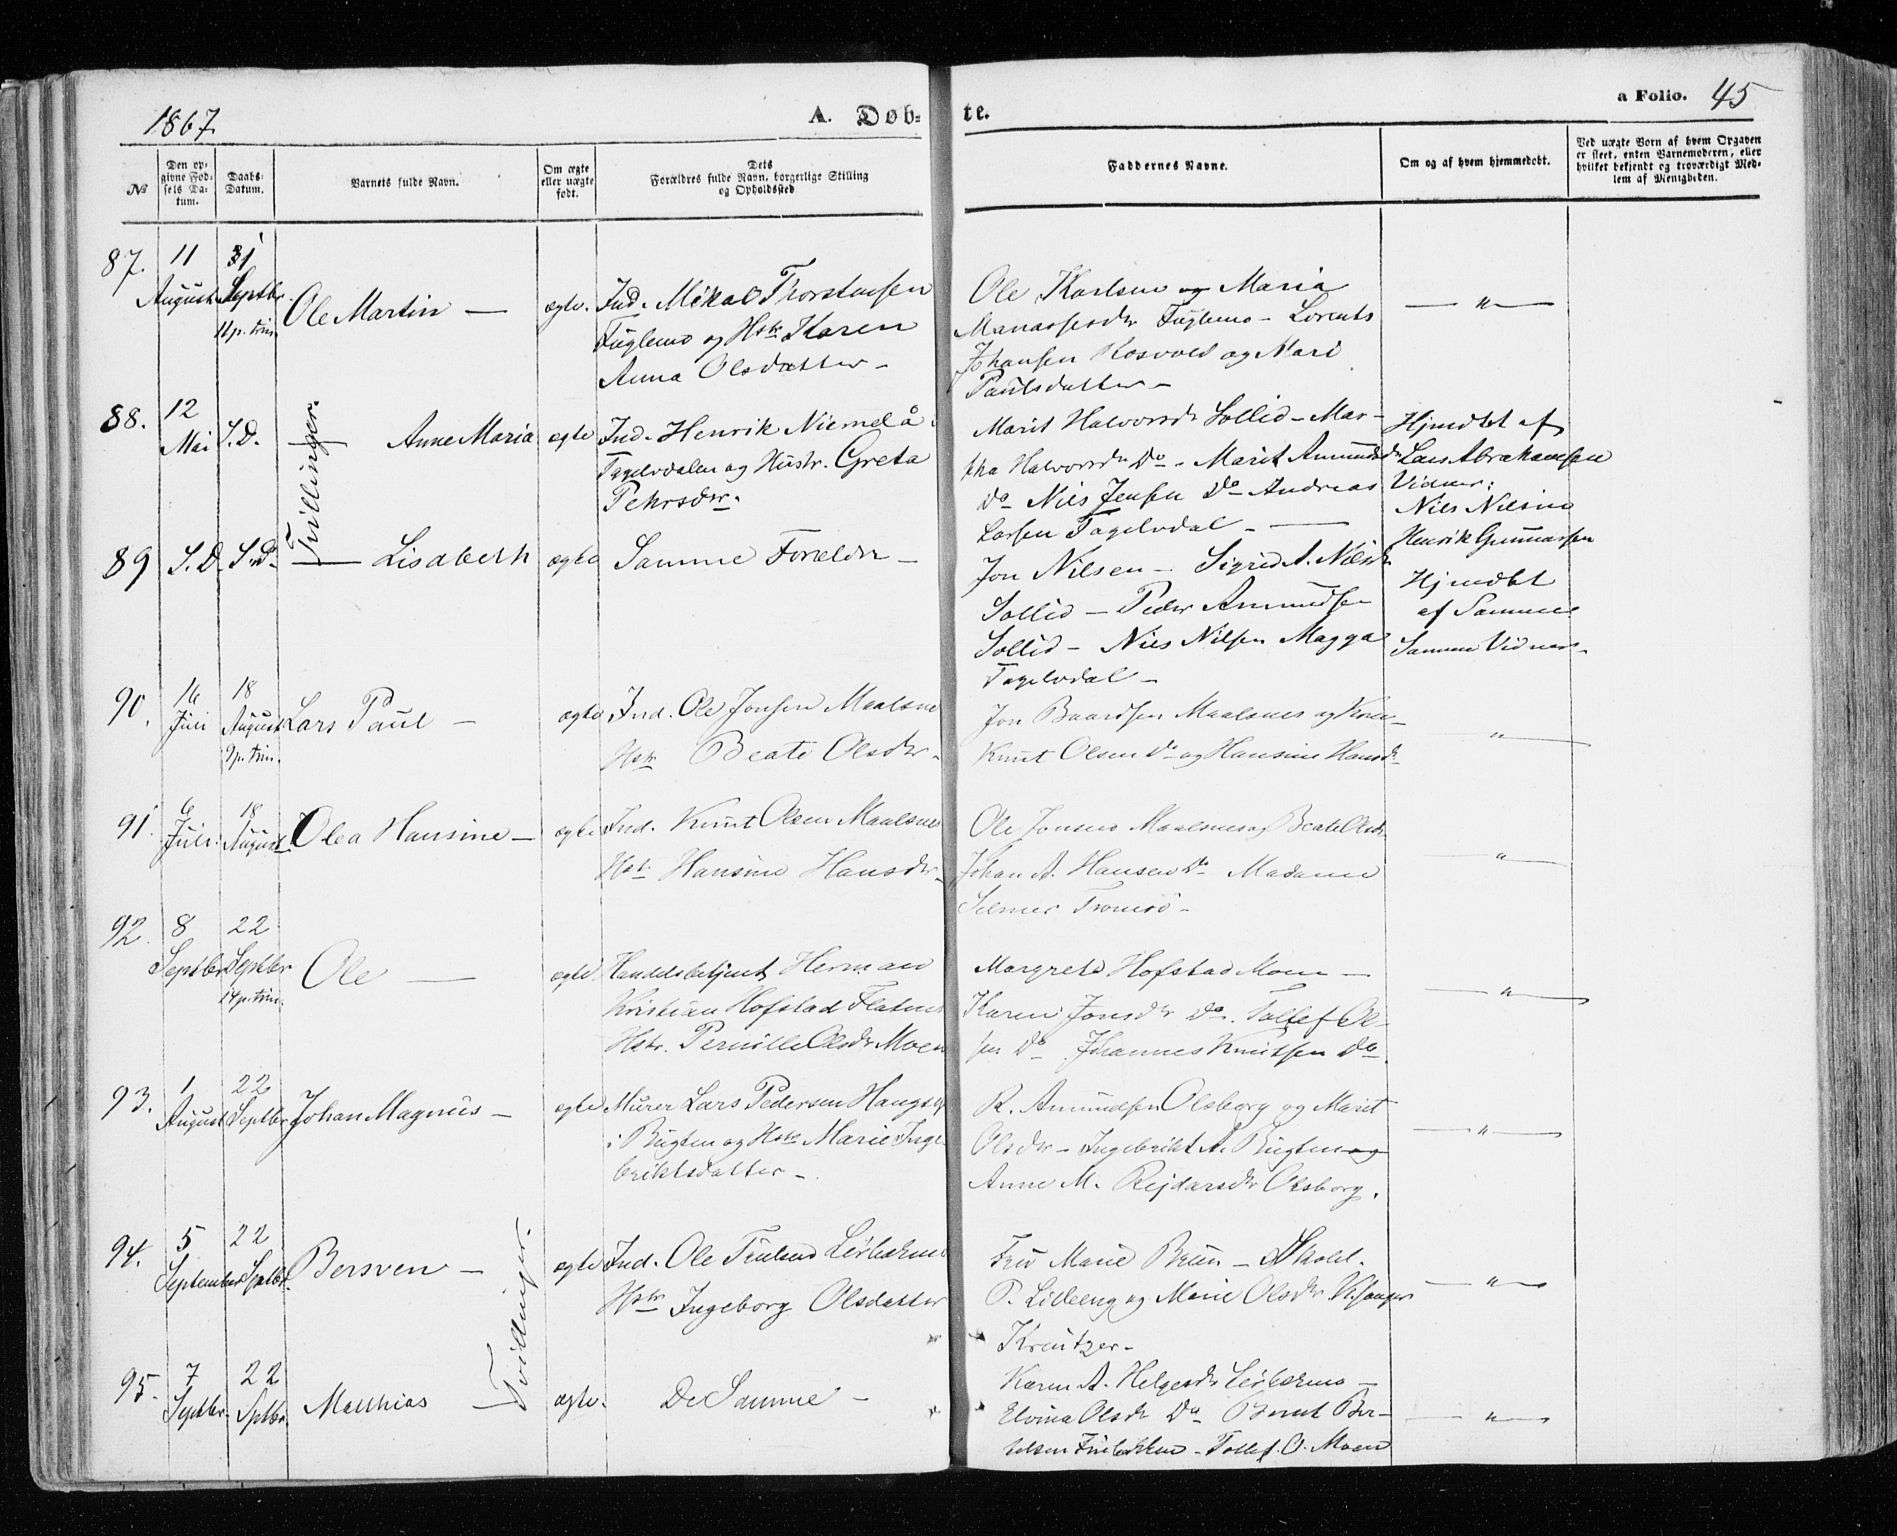 1867.
A. Døb-
te.
a Folio. 45
No
Den opgivne Fødsels Datum.
Daabs-Datum.
Barnets fulde Navn.
Om ægte eller uægte født.
Dets Forældres fulde Navn, borgerlige Stilling og Opholdssted
Faddernes Navne.
Om og af hvem hjemmedøbt.
Ved uægte Børn af hvem Opgaven er skeet, enten Barnemoderen, eller hvilket bekjendt og troværdigt Medlem af Menigheden.
87. 11 August 1 Septbr 11 p. trin. Ole Martin — ægte. Ind. Mikal Thorstensen
Fuglemo og Hstr. Karen
Anna Olsdatter –
Ole Karlsen og Maria
Manassesdr Fuglemo – Lorents
Johansen Rosvold og Mari
Paulsdatter –
— " —
88. 12 Mai S.D. Tvillinger. Anne Maria ægte Ind. Henrik Niemelå
Tagelvdalen og Hustr. Greta
Pehrsdtr.
Marit Halvorsdr Sollid – Mar-
tha Halvorsdr Do – Marit Amundsdr
Do Nils Jensen Do – Andreas
Larsen Tagelvdal –
Hjmdbt af
Lars Abrahamsen
Vidner:
Nils Nilsen
Henrik Gunnarsen
89 S.D. S.D. — Lisabeth ægte Samme Forældre –
Jon Nilsen – Sigrid A. Nilsdr
Sollid – Peder Amundsen
Sollid – Nils Nilsen Magga
Tagelvdal –
Hjmdbt
af Samme
Samme Vidner –
90. 16 Juli 18 August 9 p. trin. Lars Paul – ægte Ind. Ole Jonsen Maalsnes
Hstr Beate Olsdtr –
Jon Baardsen Maalsnes og Kone –
Knut Olsen Do og Hansine Hansdr
— " —
91. 6 Juli 18 August Olea Hansine – ægte Ind. Knut Olsen Maalsnes
Hstr. Hansine Hansdtr –
Ole Jonsen Maalsnes og Beate Olsdr
Johan A. Hansen Do Madame
Selmer Tromsø –
— " —
92. 8 Septbr 22 Septbr 14 p. trin. Ole — ægte Handelsbetjent Herman
Kristian Hofstad Flatmo
Hstr. Pernille Olsdr Moen
Margrete Hofstad Moen –
Karen Jonsdr Do. Tollef Ol-
sen Do Johannes Knutsen Do.
— " —
93. 1 August 22 Septbr Johan Magnus – ægte Murer Lars Pedersen
i Bugten og Hstr Marie Inge-
briktsdatter –
R. Amundsen Olsborg og Marit
Olsdr – Ingebrikt A. Bugten og
Anne M. Rejdarsdr Olsborg.
— " —
94. 5 September 22 Septbr. Bersven – Tvillinger. ægte Ind. Ole
Hstr Ingeborg Olsdatter
Fru Marie Brun – Skolel.
P. Lilleeng og Marie Olsdr. Kirkesanger
Kreutzer –
— " —
95. 7 Septbr. 22 Sptbr. Matthias — ægte. De Samme –
Karen A. Helgesdr –
Elvina Olsdr Do Bernt Ber-
telsen – Tollef O. Moen
— " —